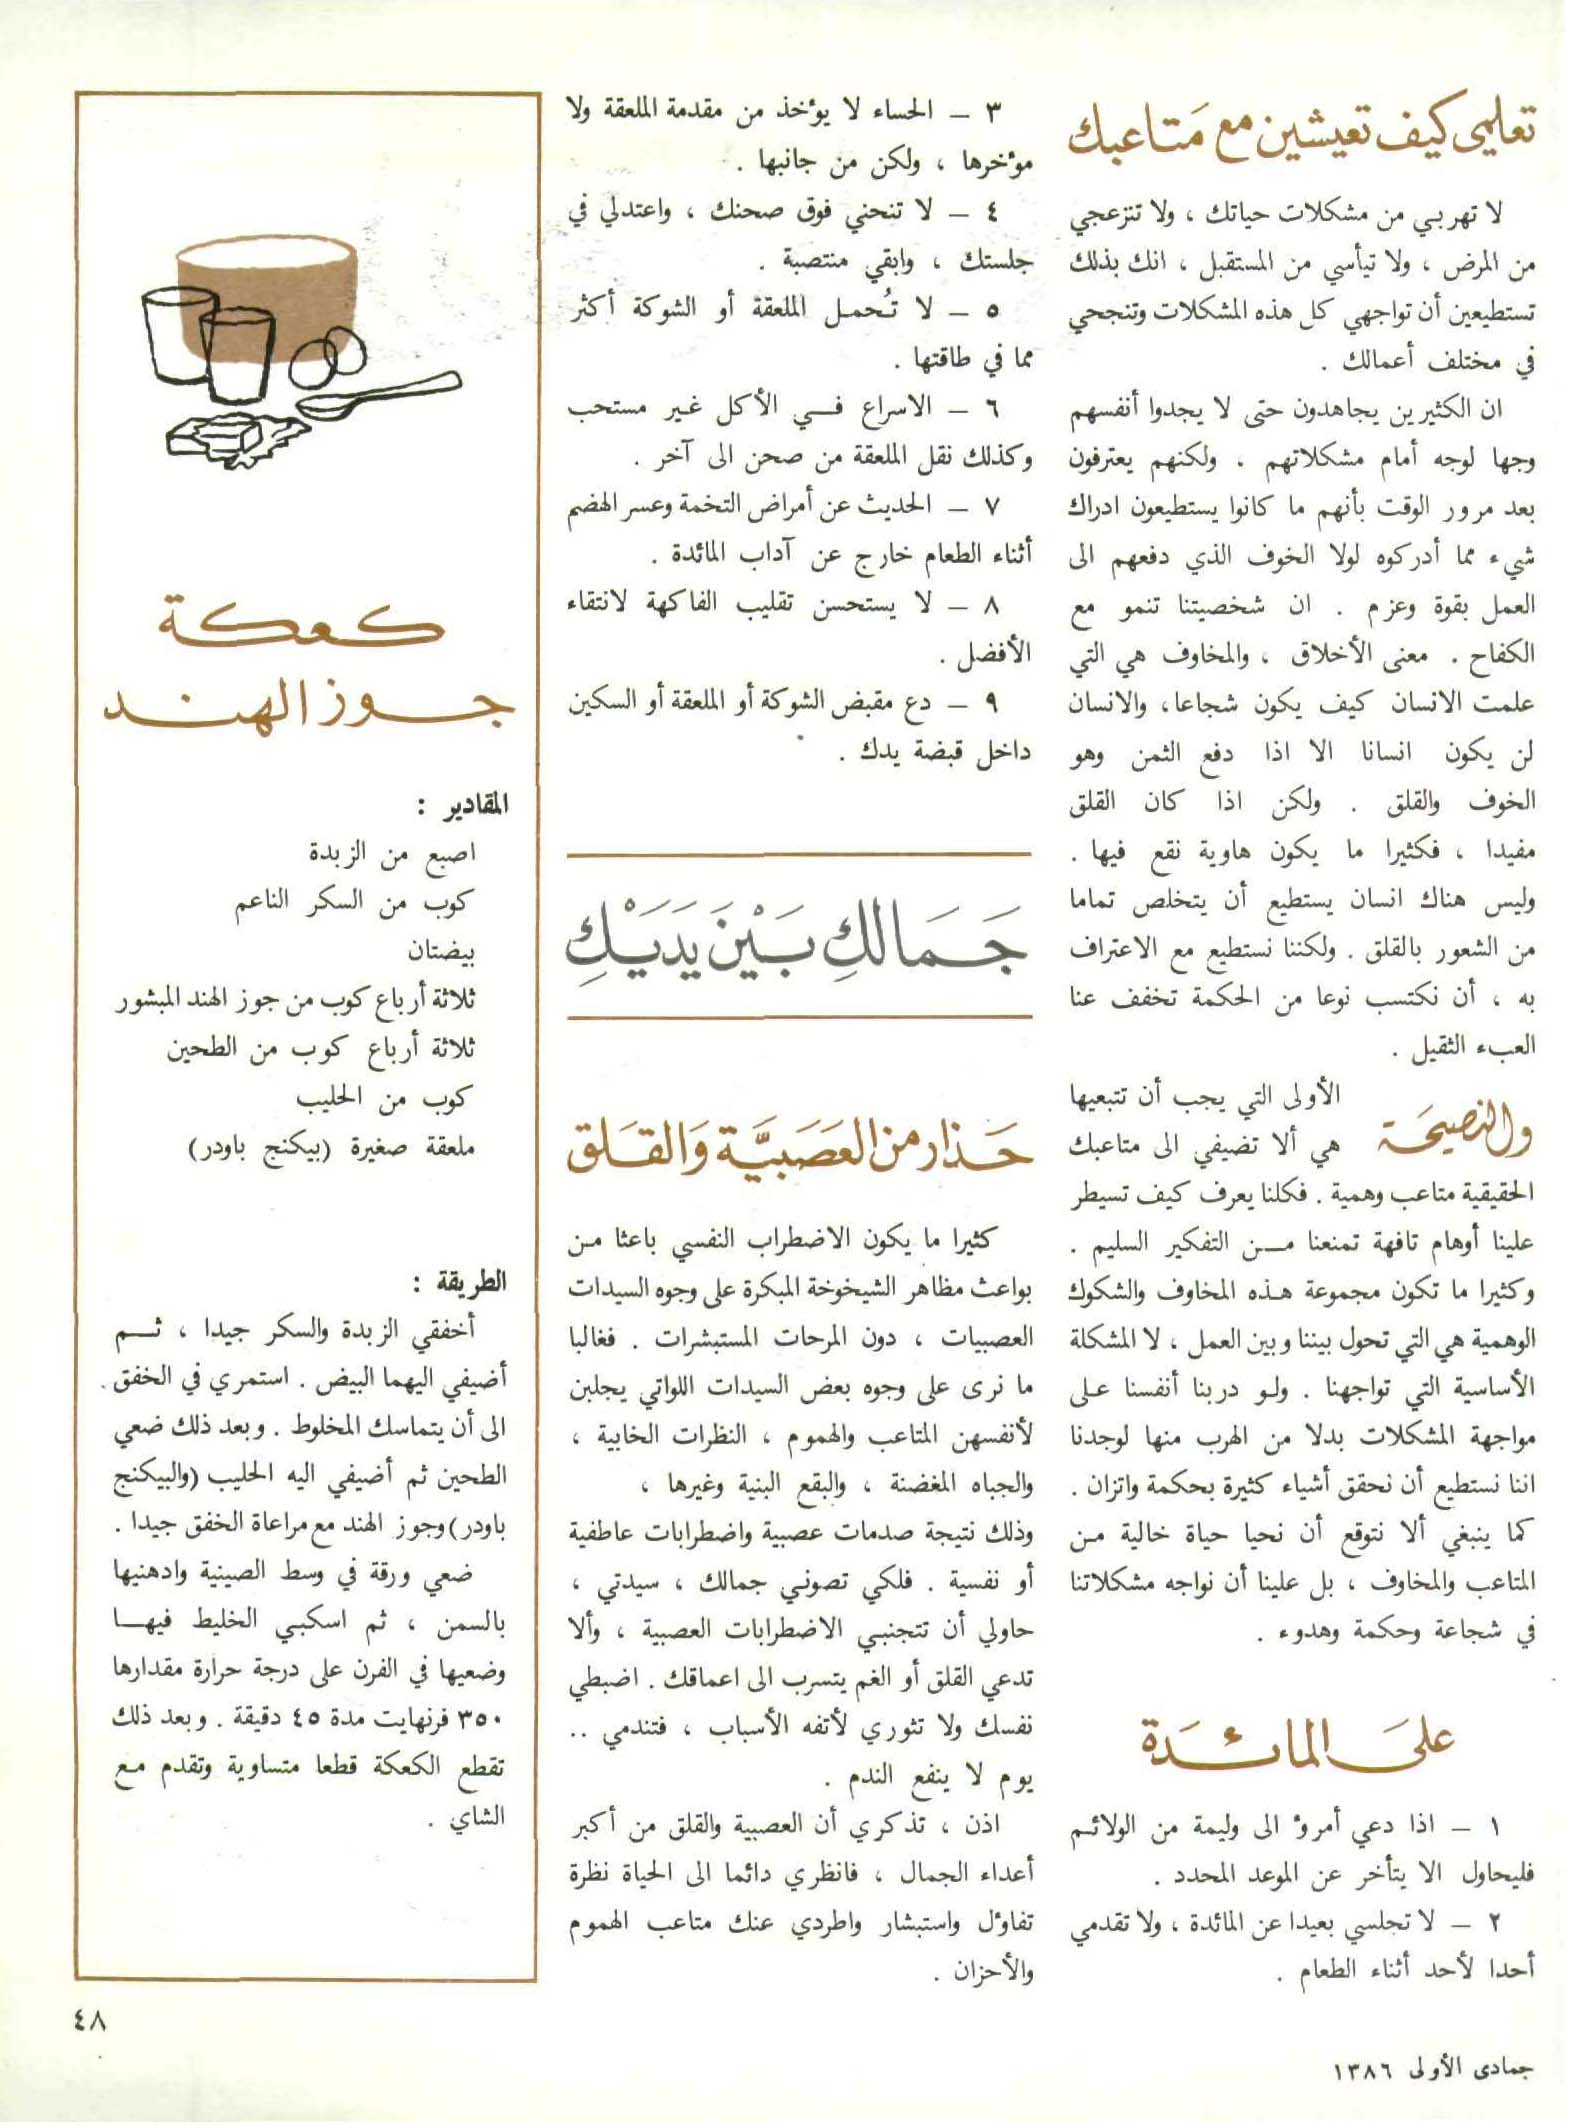 تعلمي كيف تعيشين مع مَتاعبك
لا تهربي من مشكلات حياتك ، ولا تنزعجي
من المرض ، ولا تيأسي من المستقبل ، انك بذلك
تستطيعين أن تواجهي كل هذه المشكلات وتنجحي
في مختلف أعمالك .
ان الكثيرين يجاهدون حتى لا يجدوا أنفسهم
وجها لوجه أمام مشكلاتهم . ولكنهم يعترفون
بعد مرور الوقت بأنهم ما كانوا يستطيعون ادراك
شيء مما أدركوه لولا الخوف الذي دفعهم الى
العمل بقوة وعزم . ان شخصيتنا تنمو مع
الكفاح . معنى الأخلاق ، والمخاوف هي التي
علمت الانسان كيف يكون شجاعا، والانسان
لن يكون انسانا الا اذا دفع الثمن وهو
الخوف والقلق . ولكن اذا كان القلق
مفيدا ، فكثيرا ما يكون هاوية نقع فيها .
وليس هناك انسان يستطيع أن يتخلص تماما
من الشعور بالقلق . ولكننا نستطيع مع الاعتراف
به ، أن نكتسب نوعا من الحكمة تخفف عنا
العبء الثقيل .
والنصيحَة الأولى التي يجب أن تتبعيها
هي ألا تضيفي الى متاعبك
الحقيقية متاعب وهمية . فكلنا يعرف كيف تسيطر
علينا أوهام تافهة تمنعنا مـن التفكير السليم .
وكثيرا ما تكون مجموعة هـذه المخاوف والشكوك
الوهمية هي التي تحول بيننا وبين العمل ، لا المشكلة
الأساسية التي تواجهنا . ولـو دربنا أنفسنا علـى
مواجهة المشكلات بدلا من الهرب منها لوجدنا
اننا نستطيع أن نحقق أشياء كثيرة بحكمة واتزان .
كما ينبغي ألا نتوقع أن نحيا حياة خالية مـن
المتاعب والمخاوف ، بل علينا أن نواجه مشكلاتنا
في شجاعة وحكمة وهدوء .
علىَ المائـدَة
١ – اذا دعي أمروُ الى وليمة من الولائـم
فليحاول الا يتأخر عن الموعد المحدد .
٢ – لا تجلسي بعيدا عن المائدة ، ولا تقدمي
أحدا لأحد أثناء الطعام .
٣ – الحساء لا يوُخذ من مقدمة الملعقة ولا
موُخرها ، ولكن من جانبها .
٤ – لا تنحني فوق صحنك ، واعتدلي في
جلستك ، وابقي منتصبة .
٥ – لا تُحمـل الملعقة أو الشوكة أكثر
مما في طاقتها .
٦ – الاسراع فـي الأكل غـير مستحب
وكذلك نقل الملعقة من صحن الى آخر .
٧ – الحديث عن أمراض التخمة وعسر الهضم
أثناء الطعام خارج عن آداب المائدة .
٨ – لا يستحسن تقليب الفاكهة لانتقاء
الأفضل .
٩ – دع مقبض الشوكة أو الملعقة أو السكين
داخل قبضة يدك .
جَـمَالكِ بَـيْنَ يَدَيْـكِ
حَـذار من العَصَبيَّة وَالقـَلق
كثيرا ما يكون الاضطراب النفسي باعثا مـن
بواعث مظاهر الشيخوخة المبكرة على وجوه السيدات
العصبيات ، دون المرحات المستبشرات . فغالبا
ما نرى على وجوه بعض السيدات اللواتي يجلبن
لأنفسهن المتاعب والهموم ، النظرات الخابية ،
والجباه المغضنة ، والبقع البنية وغيرها ،
وذلك نتيجة صدمات عصبية واضطرابات عاطفية
أو نفسية . فلكي تصوني جمالك ، سيدتي ،
حاولي أن تتجنبـي الاضطرابات العصبية ، وألا
تدعي القلق أو الغم يتسرب الى اعماقك . اضبطي
نفسك ولا تثوري لأتفه الأسباب ، فتندمي ..
يوم لا ينفع الندم .
اذن ، تذكري أن العصبية والقلق من أكبر
أعداء الجمال ، فانظري دائما الى الحياة نظرة
تفاوُل واستبشار واطردي عنك متاعب الهموم
والأحزان .
كـعكـة
جـوز الهنـد
المقادير :
اصبع من الزبدة
كوب من السكر الناعم
بيضتان
ثلاثة أرباع كوب من جوز الهند المبشور
ثلاثة أرباع كوب من الطحين
كوب من الحليب
ملعقة صغيرة (بيكنج باودر)
الطريقة :
أخفقي الزبدة والسكر جيدا ، ثـم
أضيفي اليهما البيض . استمري في الخفق .
الى أن يتماسك المخلوط . وبعد ذلك ضعي
الطحين ثم أضيفي اليه الحليب (والبيكنج
باودر) وجوز الهند مع مراعاة الخفق جيدا .
ضعي ورقة في وسط الصينية وادهنيها
بالسمن ، ثم اسكبـي الخليط فيهـا
وضعيها في الفرن على درجة حرارة مقدارها
٣٥٠ فرنهايت مدة ٤٥ دقيقة . وبعد ذلك
تقطع الكعكة قطعا متساوية وتقدم مـع
الشاي .
٤٨
جمادى الأولى ١٣٨٦